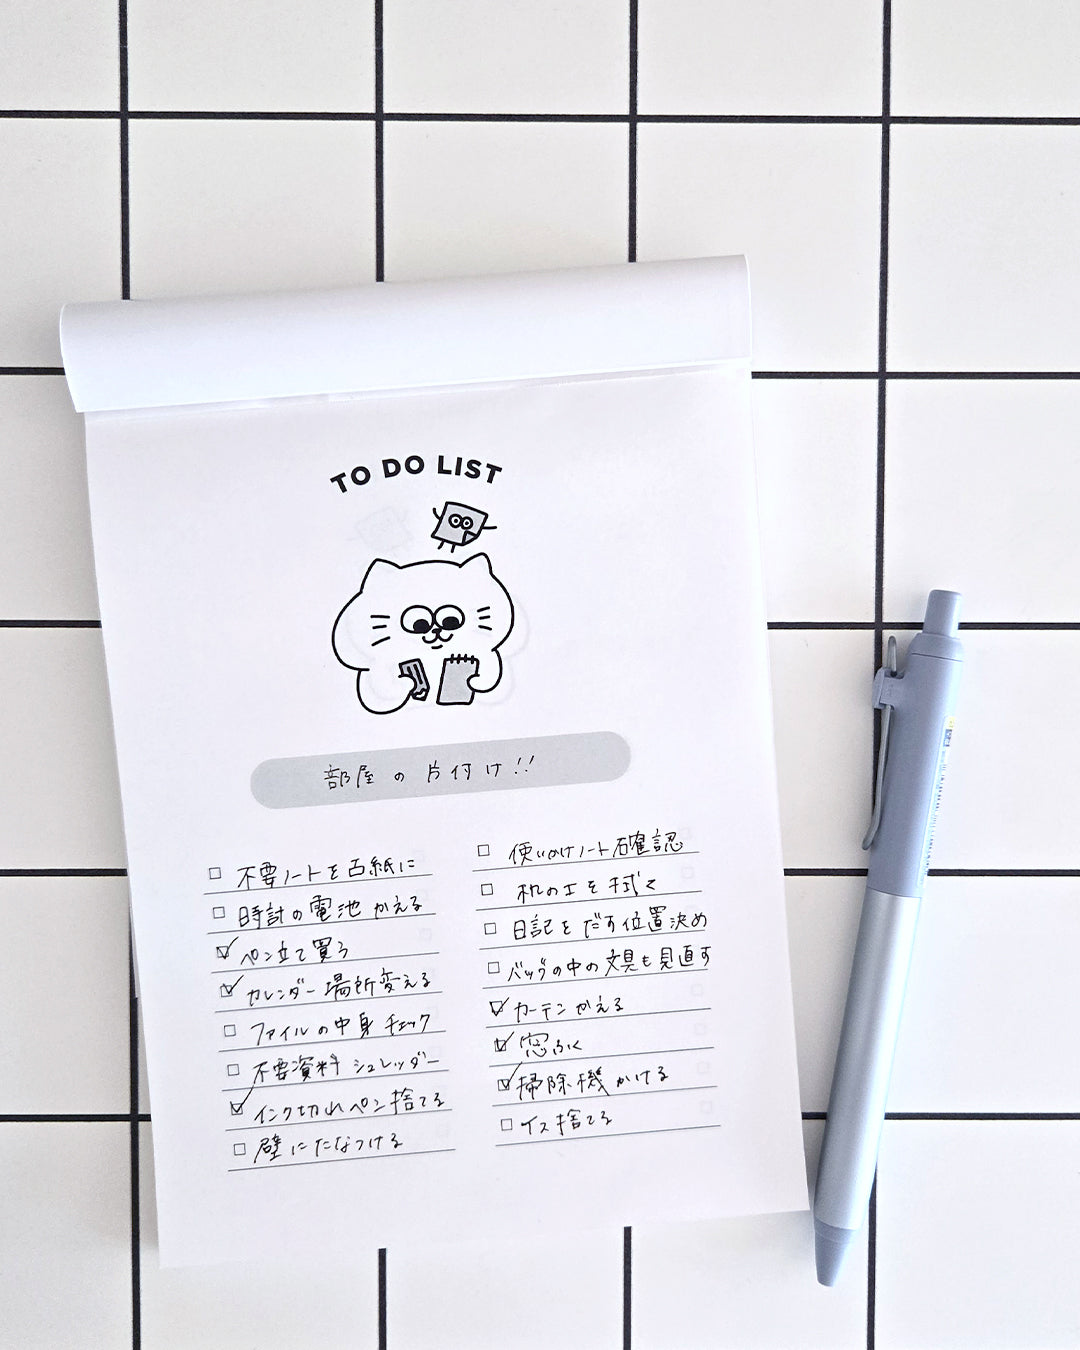 TO DO LIST
部屋の片付け!!
不要ノートを古紙に
時計の電池かえる
ペン立て買う
カレンダー場所変える
ファイルの中身チェック
不要資料シュレッダー
インク切れペン捨てる
壁にたなつける
使いかけノート確認
机の上を拭く
日記をだす位置決め
バッグの中の文具も見直す
カーテンかえる
窓ふく
掃除機かける
イス捨てる